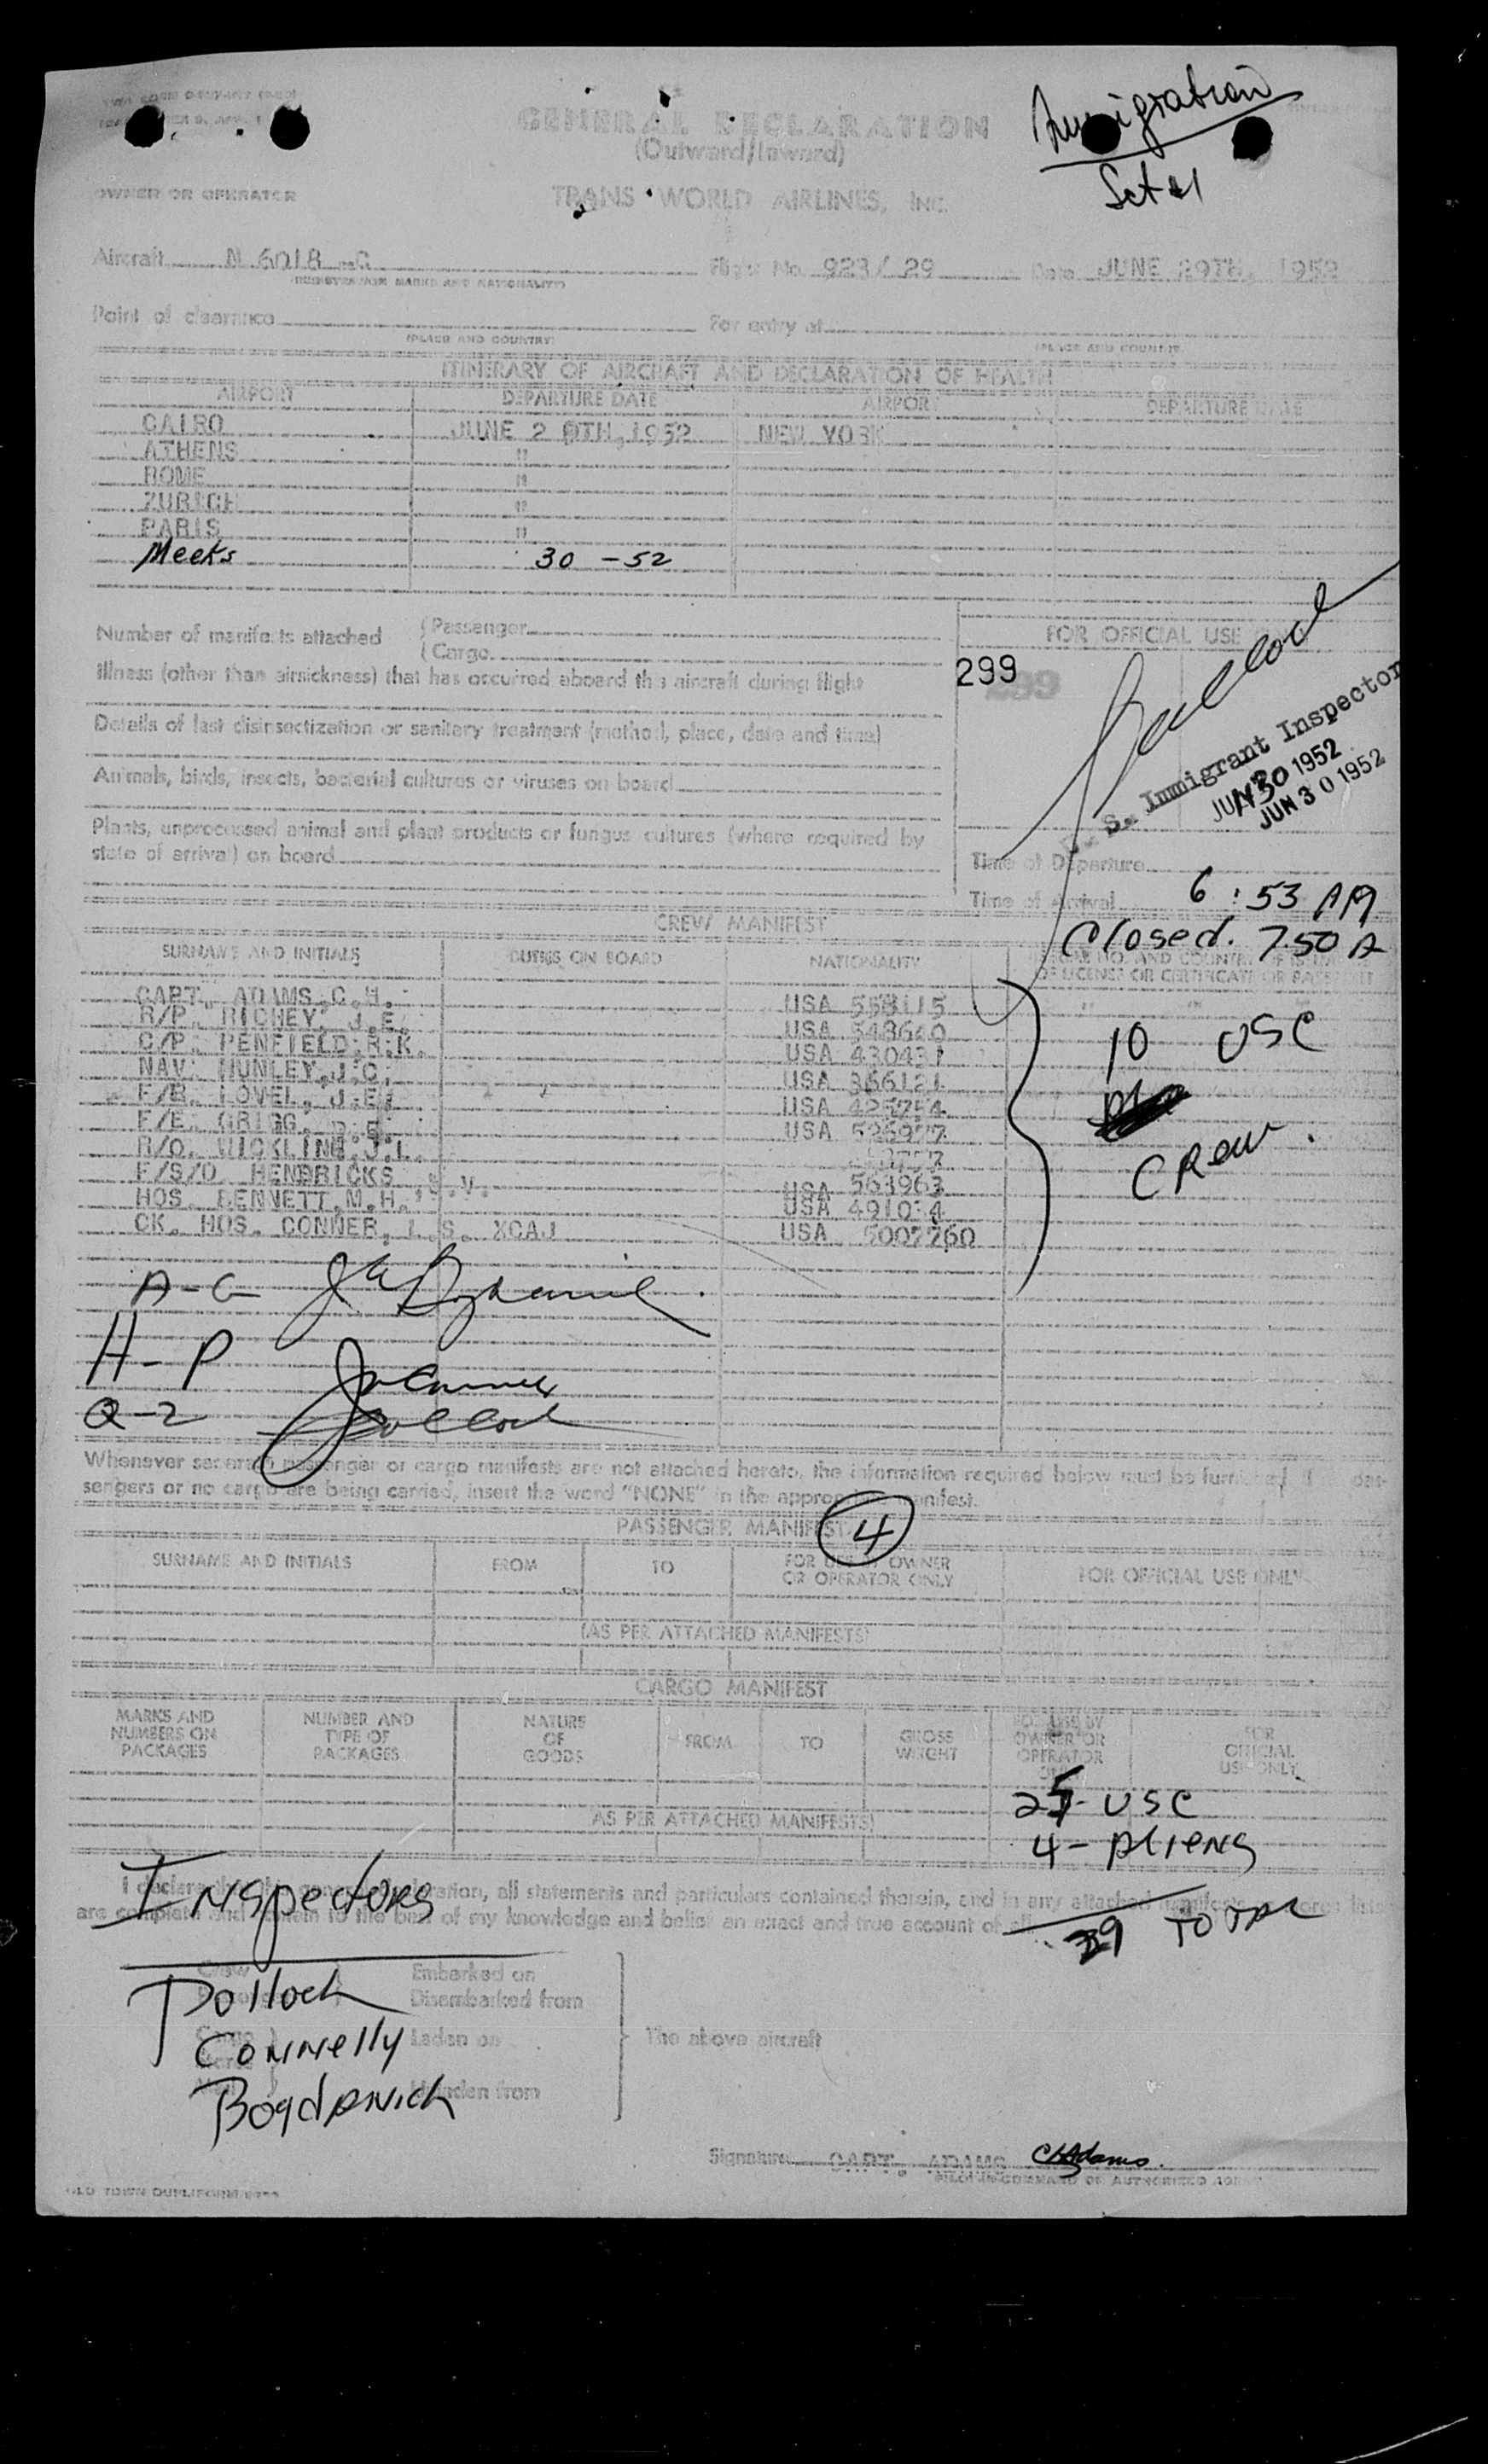 GENERAL DECLARATION
(Outward/Inward)
Immigration
Set #1
OWNER OR OPERATOR TRANS WORLD AIRLINES, INC.
Aircraft N 6018-C Flight No. 923/29 Date JUNE 29TH, 1952
(REGISTRATION MARKS AND NATIONALITY)
Point of clearance For entry at
(PLACE AND COUNTRY) (PLACE AND COUNTRY)
ITINERARY OF AIRCRAFT AND DECLARATION OF HEALTH
AIRPORT DEPARTURE DATE AIRPORT DEPARTURE DATE
CAIRO JUNE 2 9TH, 1952 NEW YORK
ATHENS "
ROME "
ZURICH "
PARIS "
Meeks 30 - 52
Number of manifests attached (Passenger
(Cargo
FOR OFFICIAL USE
299
Illness (other than airsickness) that has occurred aboard the aircraft during flight
Details of last disinsectization or sanitary treatment (method, place, date and time)
Animals, birds, insects, bacterial cultures or viruses on board
Plants, unprocessed animal and plant products or fungus cultures (where required by
state of arrival) on board
Pollock
U. S. Immigrant Inspector
JUN 30 1952
JUN 30 1952
Time of Departure
Time of Arrival 6:53 AM
Closed. 750 A
CREW MANIFEST
SURNAME AND INITIALS DUTIES ON BOARD NATIONALITY
OF LICENSE OR CERTIFICATE OR PASSPORT
CAPT. ADAMS, C.H. USA
R/P. RICHEY, J.E. USA 548640
C/P. PENFIELD, R.K. USA 430431
NAV. HUNLEY, J.C. USA 366121
LOVEL, J.E. USA
F/E. GRIGG, USA
R/O. WICKLINE, J.L.
F/S/O HENDRICKS, USA 563963
HOS. BENNETT, M.H. USA
CK. HOS. CONNER, L.S. XCAJ USA
10 USC
CREW.
A-G
H-P
Q-Z Pollock
Whenever separate passenger or cargo manifests are not attached hereto, the information required below must be furnished. If pas-
sengers or no cargo are being carried, insert the word "NONE" in the appropriate manifest.
PASSENGER MANIFEST 4
SURNAME AND INITIALS FROM TO FOR USE BY OWNER OR OPERATOR ONLY FOR OFFICIAL USE ONLY
(AS PER ATTACHED MANIFESTS)
CARGO MANIFEST
MARKS AND NUMBERS ON PACKAGES NUMBER AND TYPE OF PACKAGES NATURE OF GOODS FROM TO GROSS WEIGHT FOR USE BY OWNER OR OPERATOR ONLY FOR OFFICIAL USE ONLY
25 - USC
(AS PER ATTACHED MANIFESTS)
4 - ALIENS
29 TOTAL
I declare that this general declaration, all statements and particulars contained therein, and in any attached manifests
are complete and contain to the best of my knowledge and belief an exact and true account of all
Inspectors
Pollock
Connelly
Bogdanich
Crew Embarked on
Disembarked from
Laden on
Unladen from
The above aircraft
Signature CAPT. ADAMS CHAdams.
PILOT IN COMMAND OR AUTHORIZED AGENT